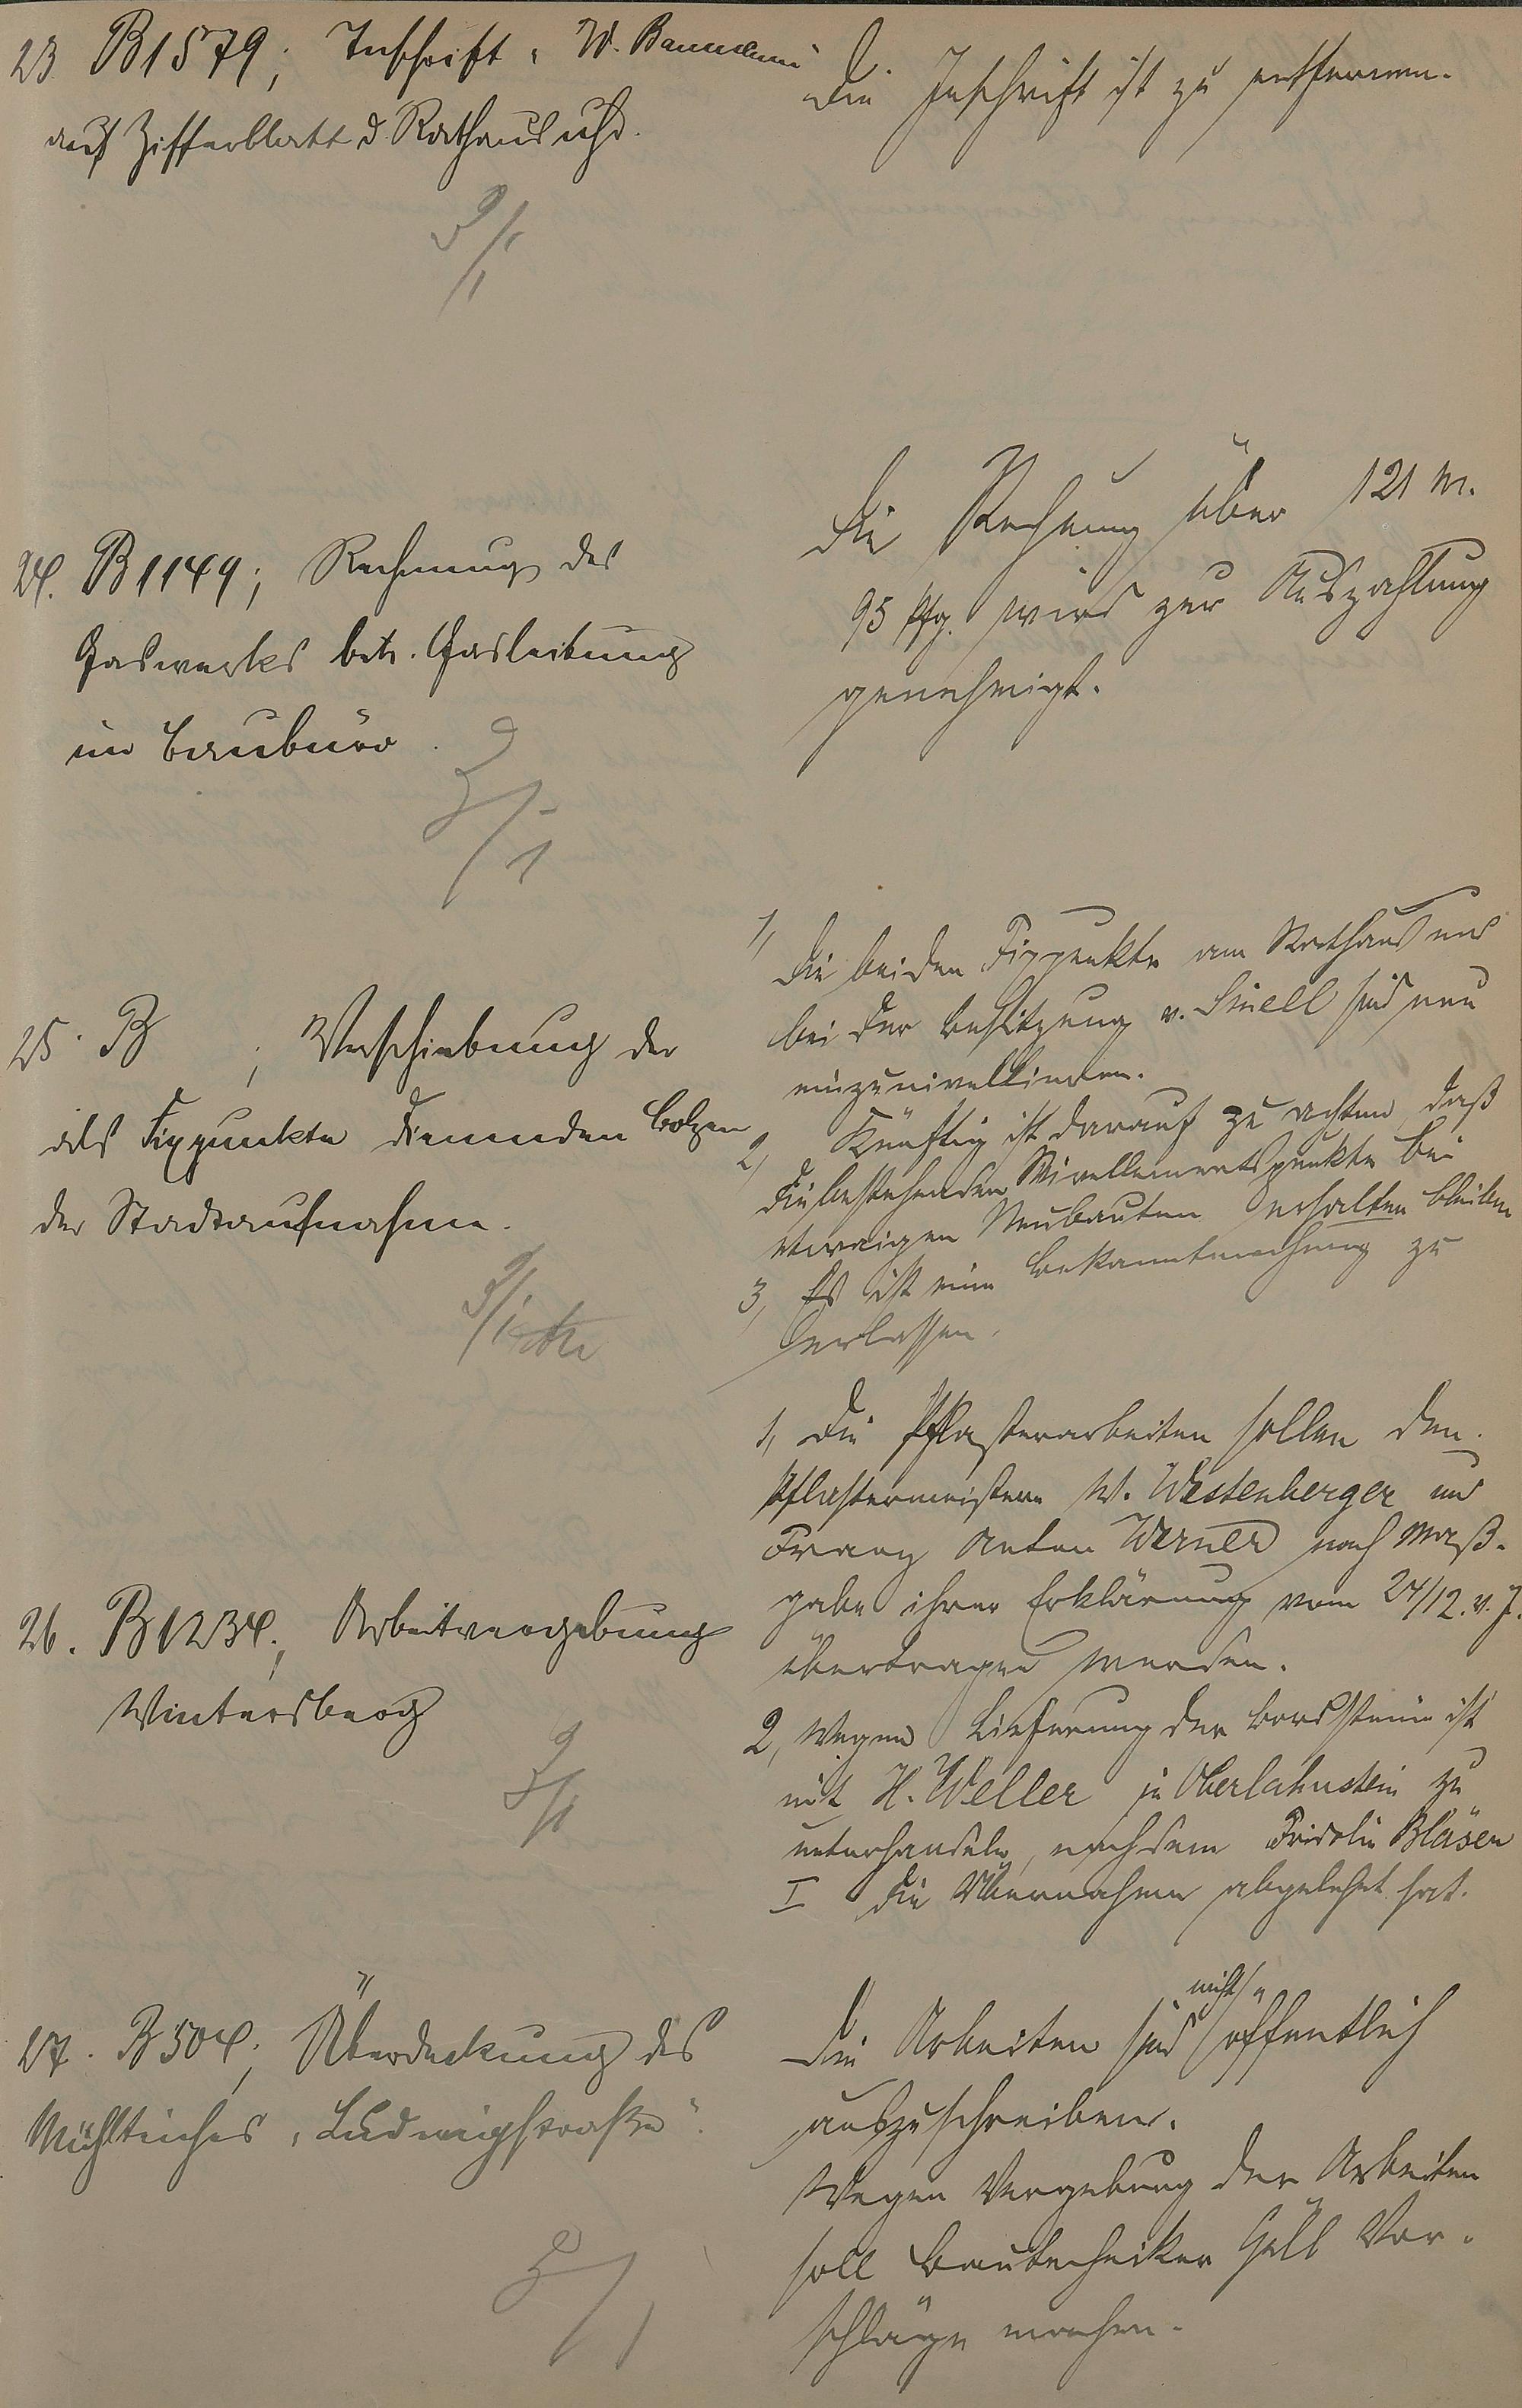 23 B1579; Inschrift "W. Baumann"
auf Zifferblatt d. Rathausuhr.
Die Inschrift ist zu entfernen.
24. B1149; Rechnung des
Gaswerks betr. Gasleitung
im Baubüro.
Die Rechnung über 121 M.
95 Pfg. wird zur Auszahlung
genehmigt.
25. B ; Verschiebung der
als Fixpunkte dienenden Bolzen
der Stadtaufnahme.
1, Die beiden Fixpunkte am Rathaus und
bei der Besitzung v. Sinell sind neu
einzunivellieren.
2, Künftig ist darauf zu achten, daß
die bestehenden Nivellementspunkte bei
etwaigen Neubauten erhalten bleiben
3, Es ist eine Bekanntmachung zu
erlassen.
26. B1234; Arbeitvergebung
Wintersberg
1, Die Pflasterarbeiten sollen den
Pflastermeistern W. Westenberger und
Franz Anton Werner nach Maß-
gabe ihrer Erklärung vom 24/12. v. J.
übertragen werden.
2, Wegen Lieferung der Bordsteine ist
mit H. Weller in Oberlahnstein zu
unterhandeln, nachdem Fridolin Bläser
I die Übernahme abgelehnt hat.
27. B504; Überdeckung des
Mühlteiches "Ludwigstraße".
Die Arbeiten sind nicht öffentlich
auszuschreiben.
Wegen Vergebung der Arbeiten
soll Bautechniker Hill Vor-
schläge machen.